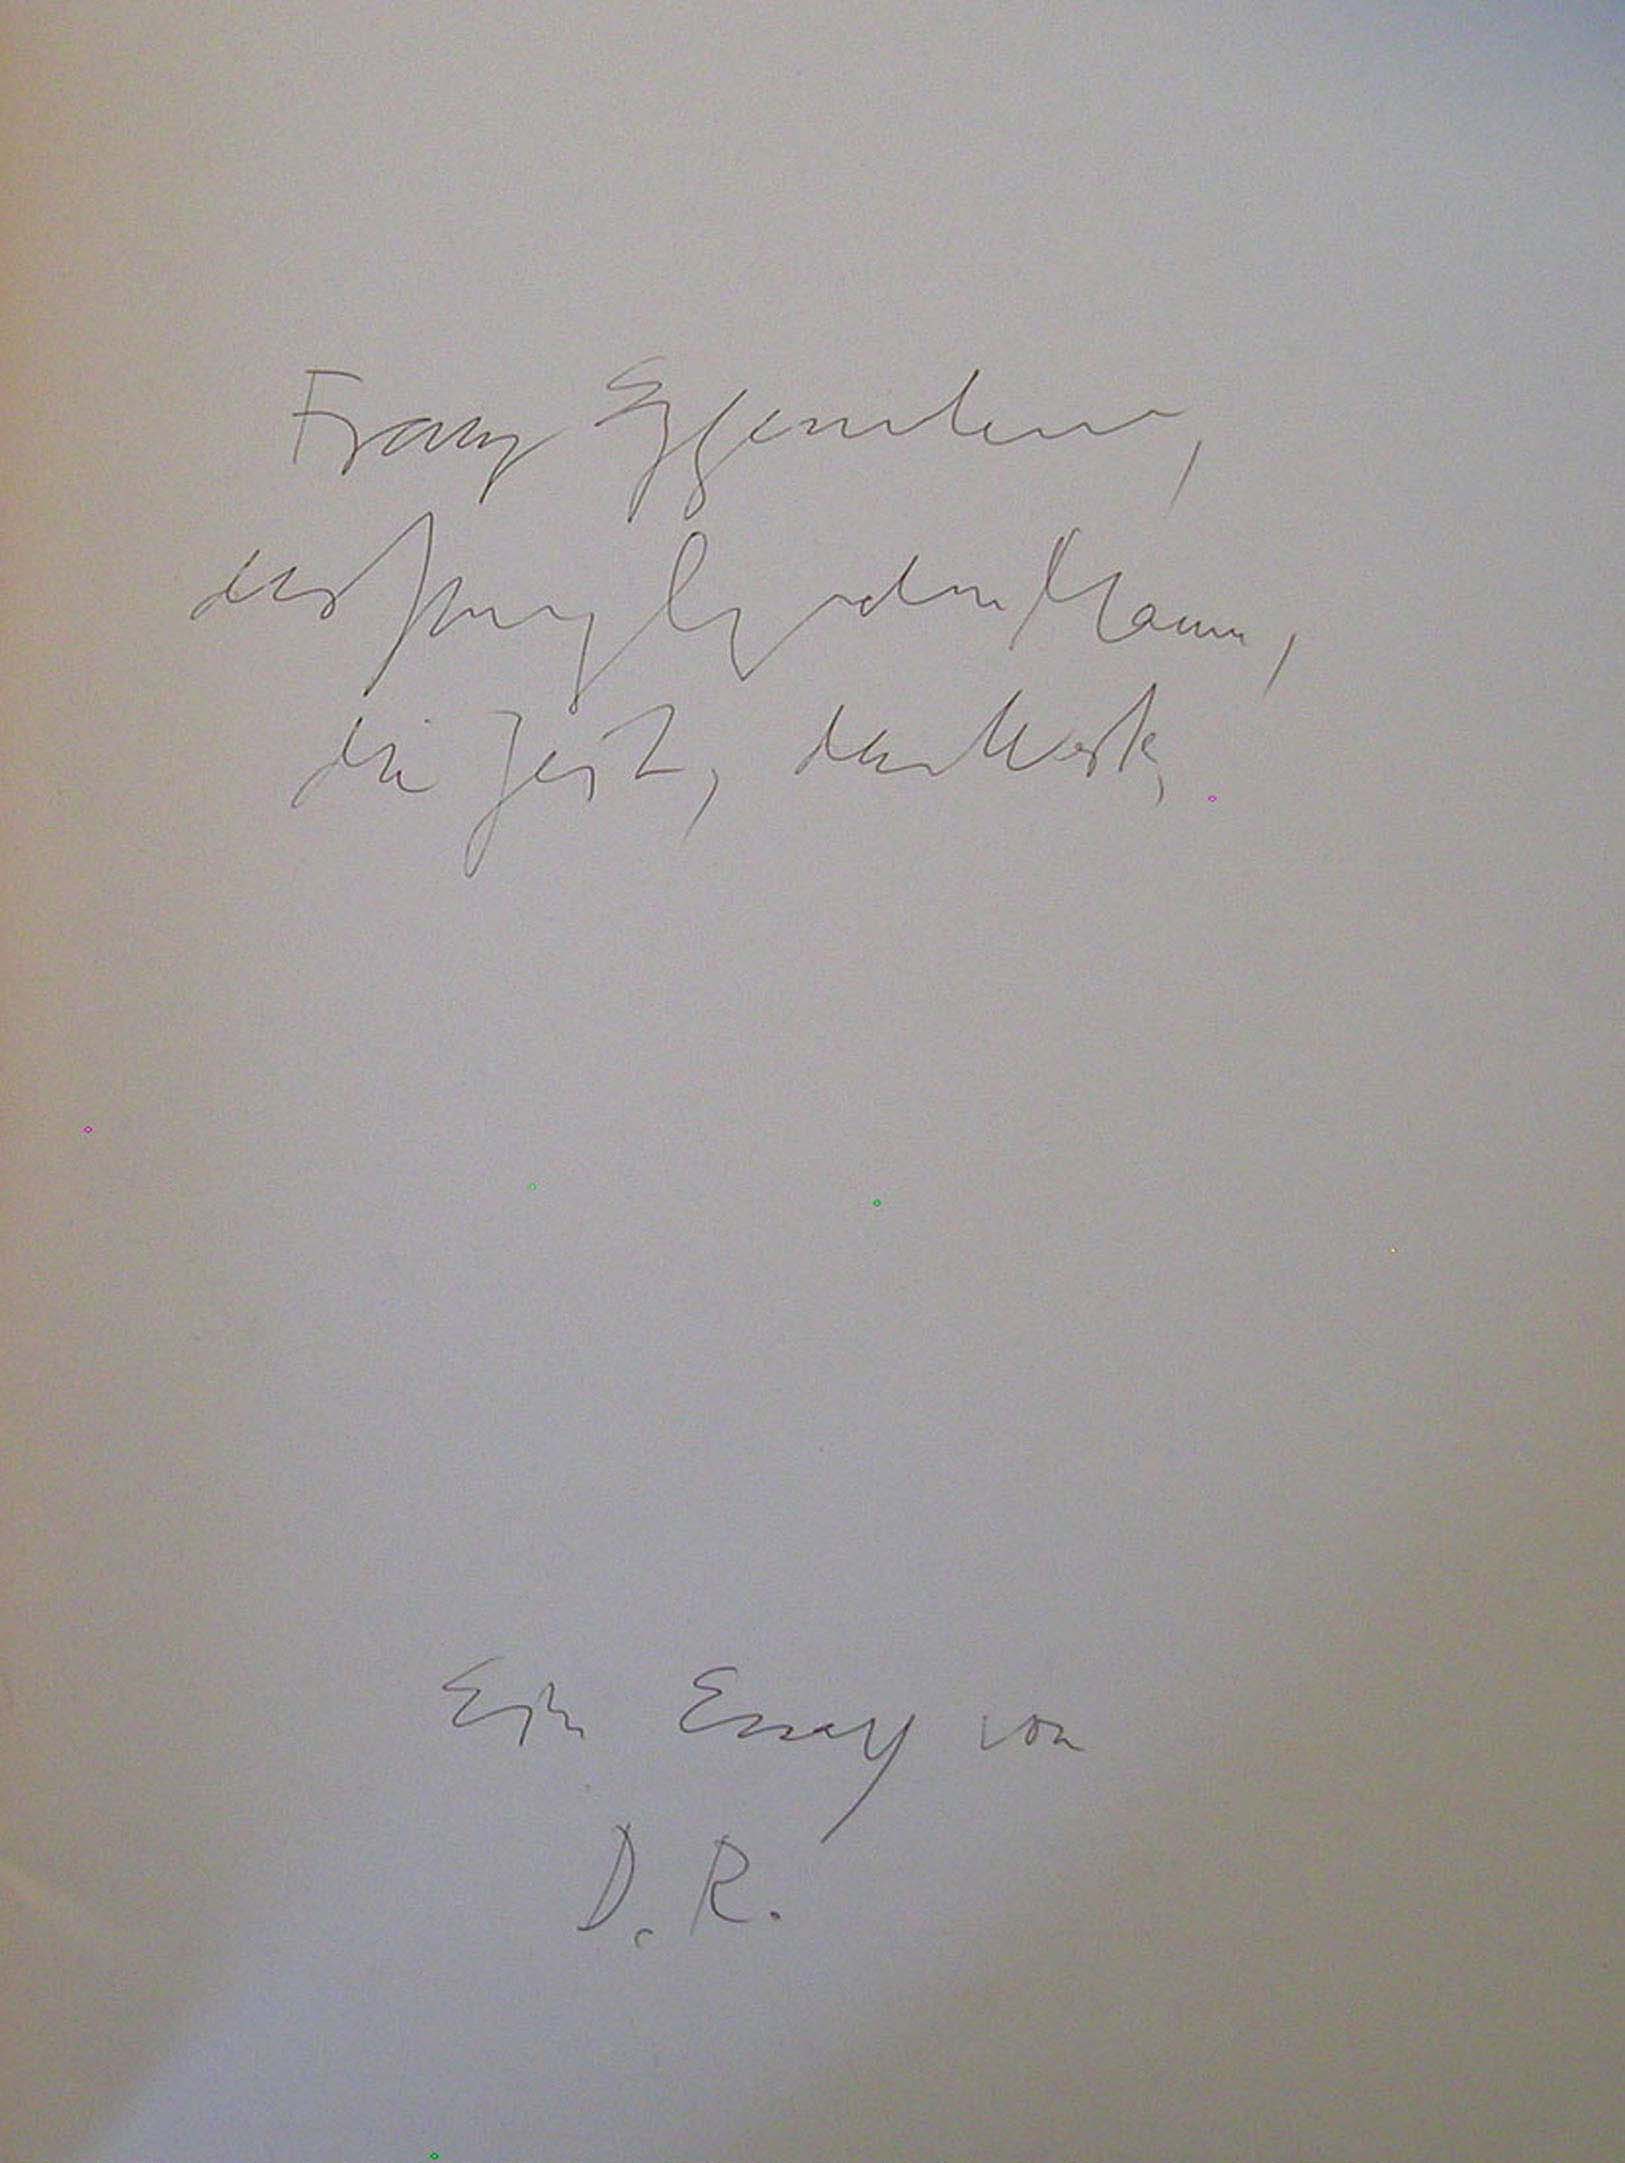 Franz Eggenschwiler,
der Mann,
die Zeit, das Werk,
Ein Essay von
D. R.